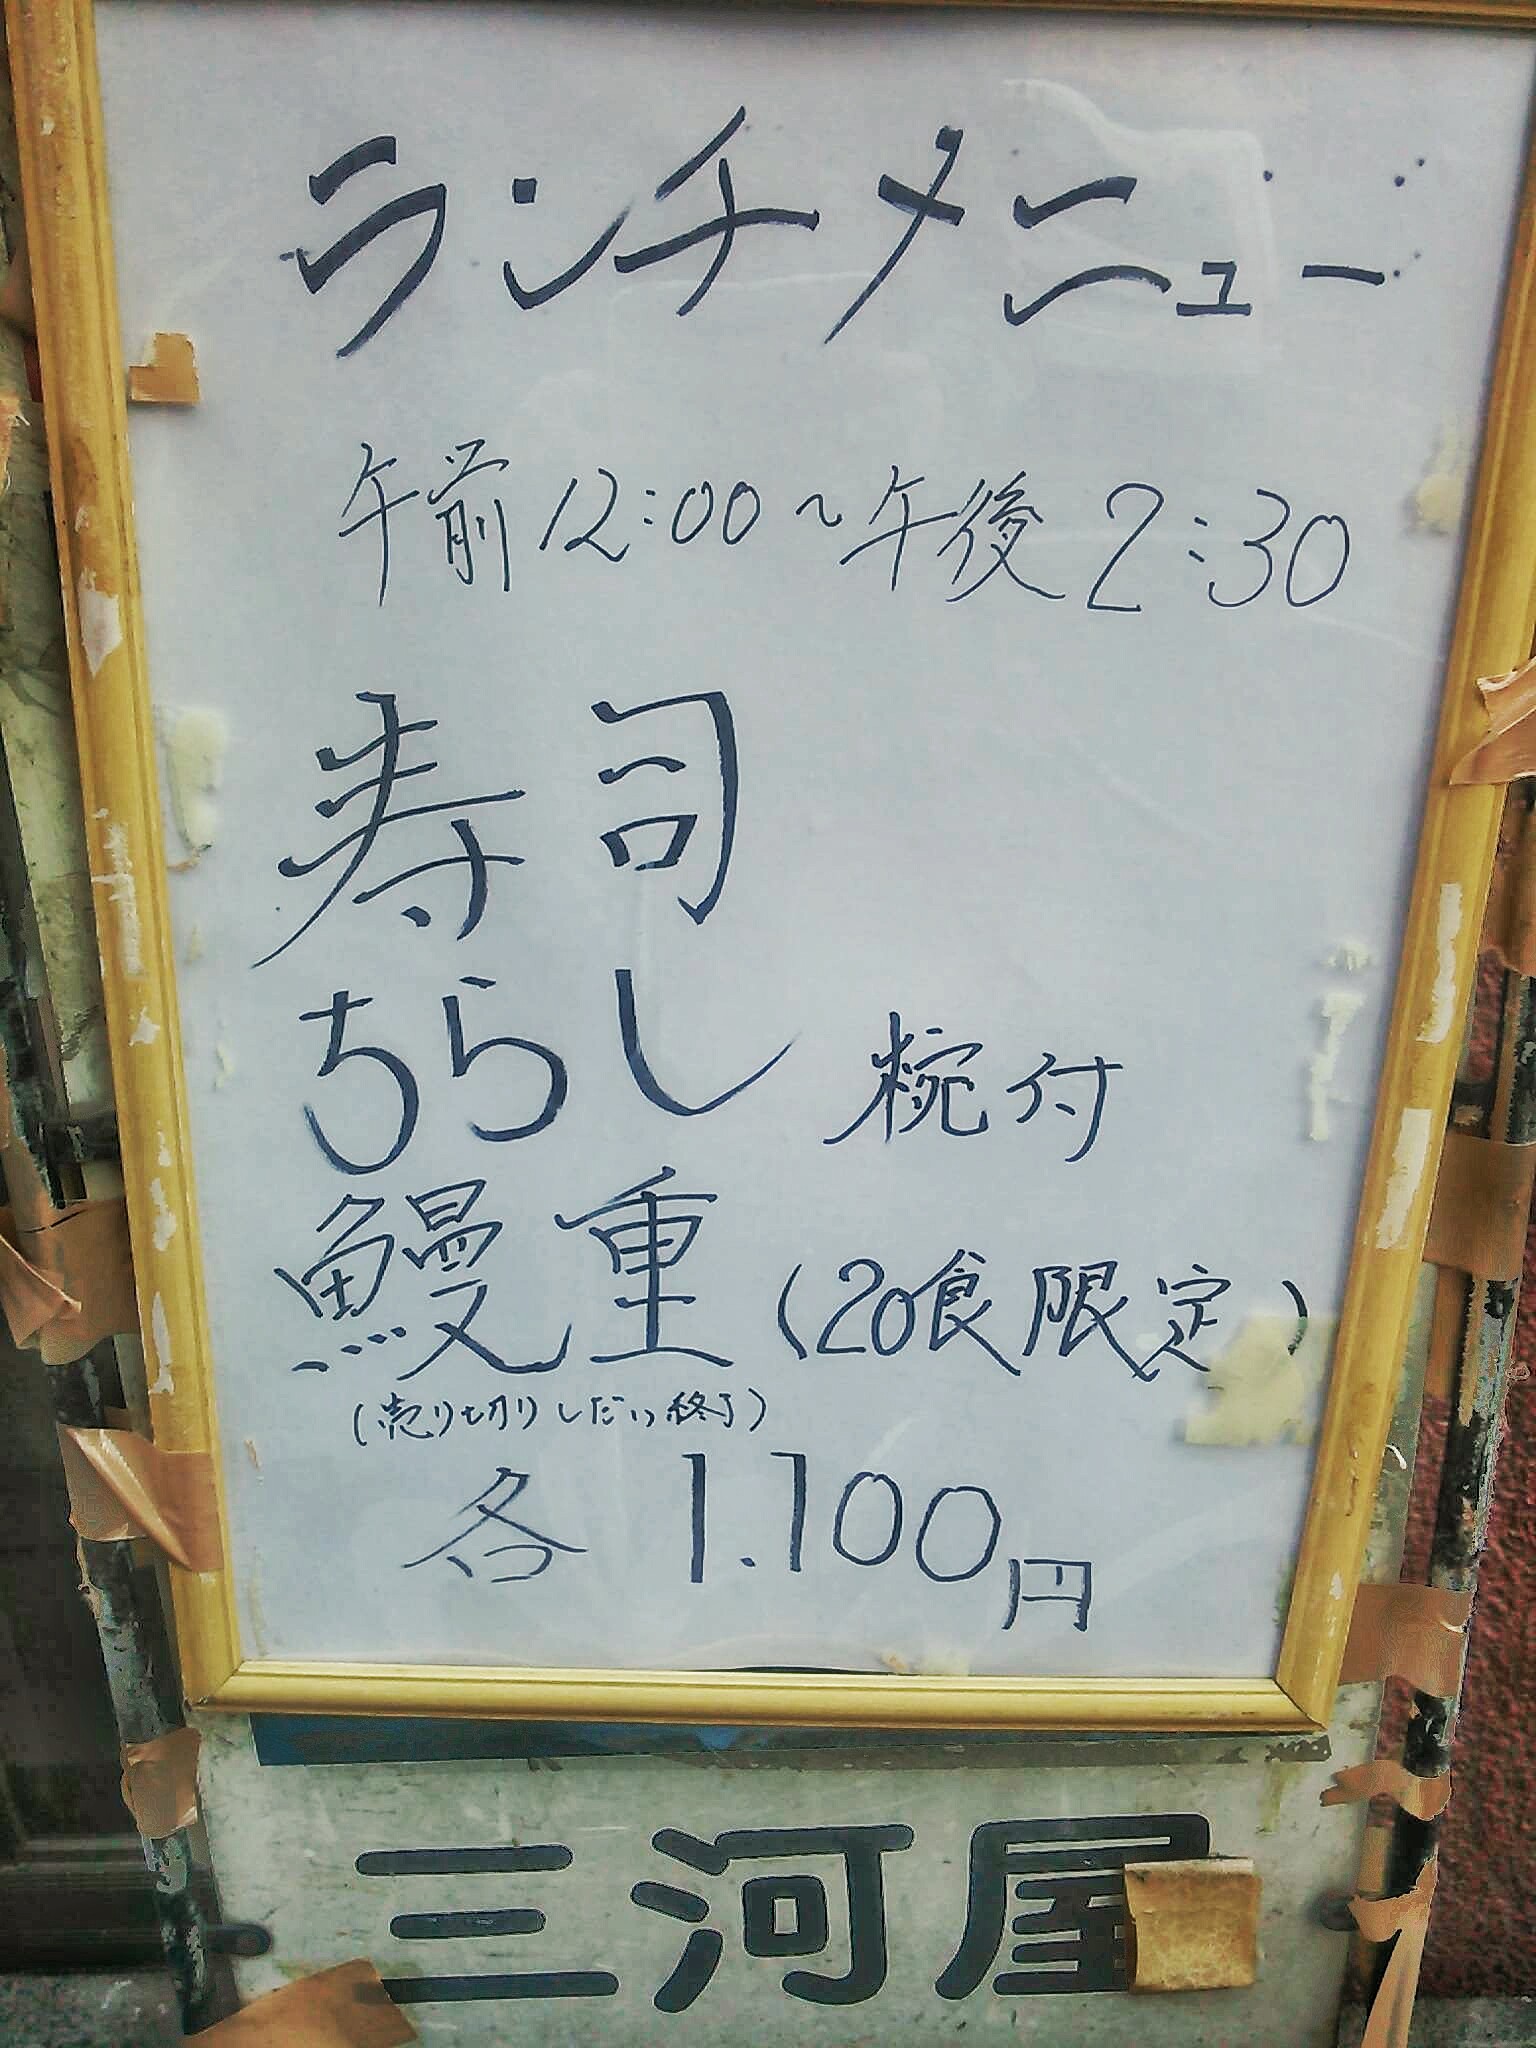 ランチメニュー
午前12:00～午後2:30
寿司
ちらし 椀付
鰻重(20食限定)
(売り切りしだい終了)
各 1.100円
三河屋